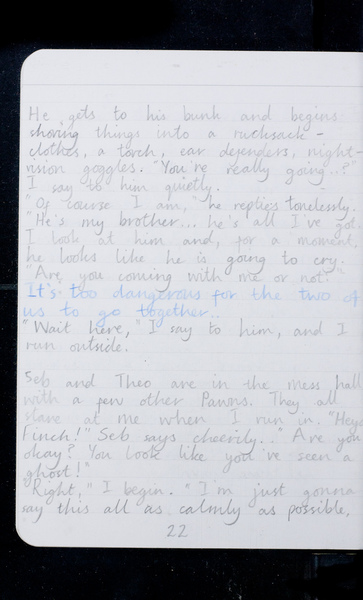 He gets to his bunk and begins
shoving things into a rucksack -
clothes, a torch, ear defenders, night-
vision goggles. "You're really going..?"
I say to him quietly.
"Of course I am," he replies tonelessly.
"He's my brother... he's all I've got.
I look at him and, for a moment,
he looks like he is going to cry.
"Are you coming with me or not?"
It's too dangerous for the two of
us to go together..
"Wait here," I say to him, and I
run outside.
Seb and Theo are in the mess hall
with a few other Pawns. They all
stare at me when I run in. "Heya
Finch!" Seb says cheerily.. "Are you
okay? You look like you've seen a
ghost!"
"Right," I begin. "I'm just gonna
say this all as calmly as possible,
22